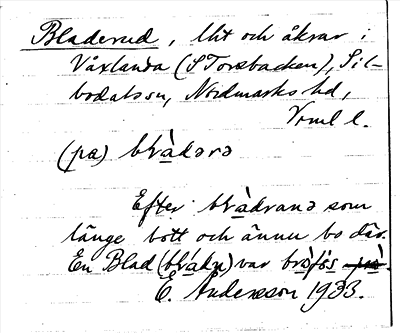 Bladerud, Uht och åkrar i
Våxlanda (S Torsbacken), Sil-
bodals sn, Nordmarks hd,
Vrml l.
(pa) blàdərə
Efter blàdranə som
länge bott och ännu bo där.
En Blad (blàdn) var bràfǒs
E. Andersson 1933.